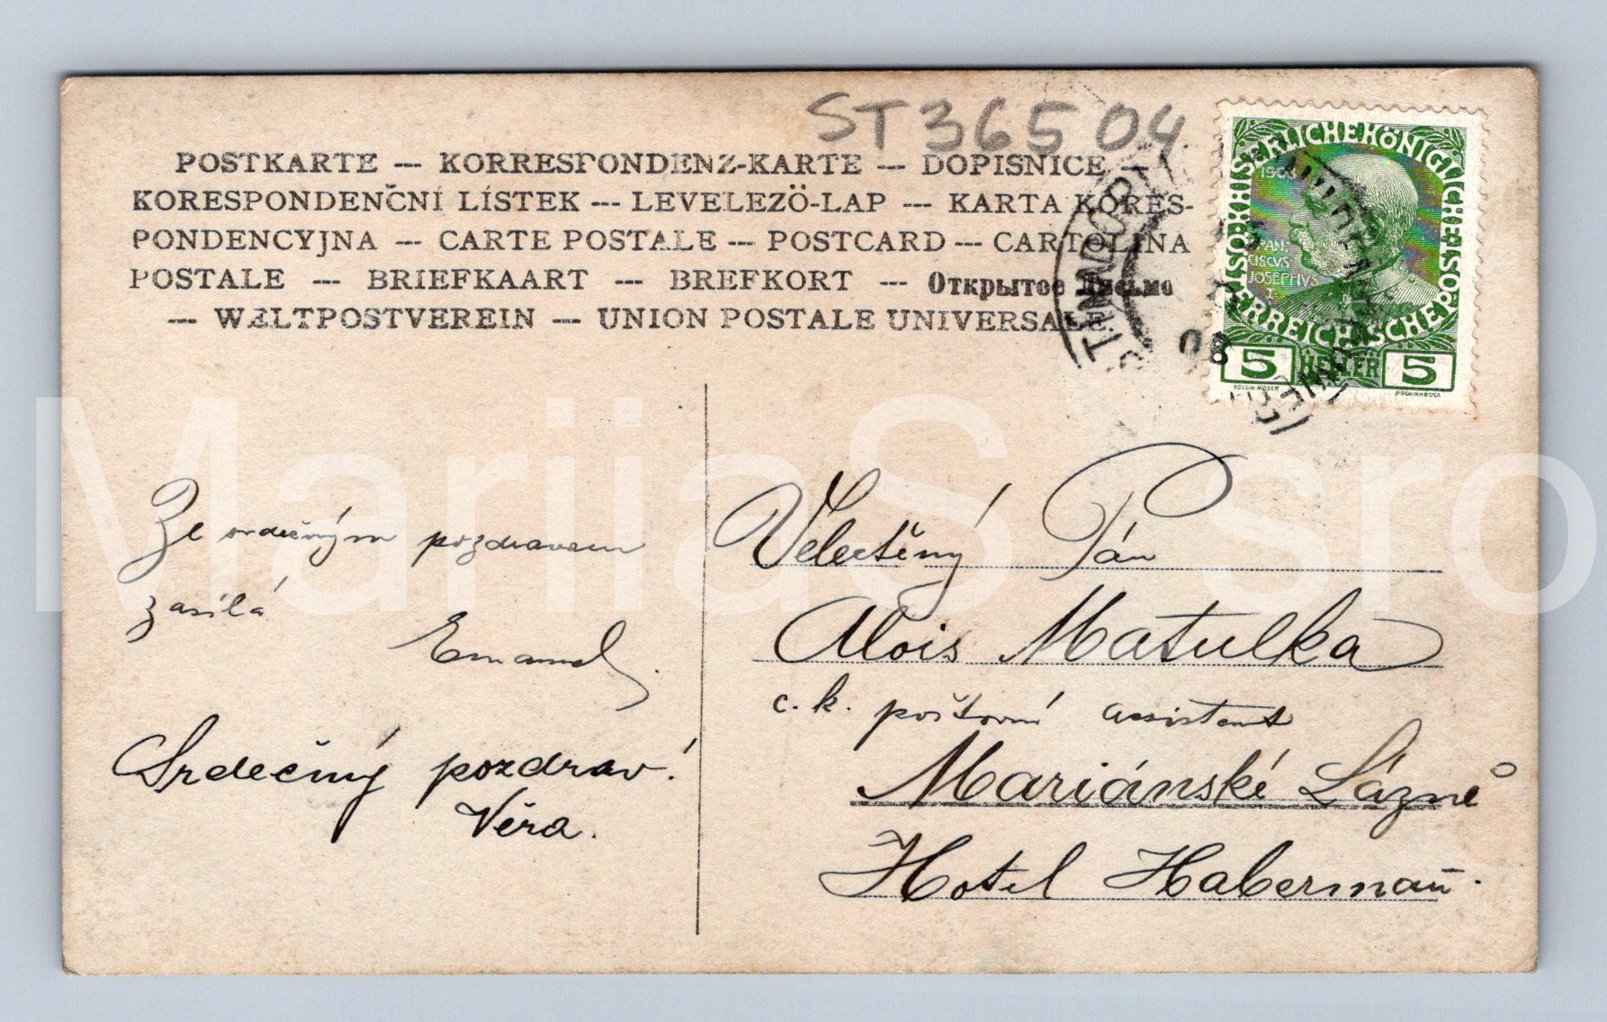 ST36504
POSTKARTE --- KORRESPONDENZ-KARTE --- DOPISNICE
KORESPONDENČNÍ LÍSTEK --- LEVELEZÖ-LAP --- KARTA KORES-
PONDENCYJNA --- CARTE POSTALE --- POSTCARD --- CARTOLINA
POSTALE --- BRIEFKAART --- BREFKORT --- Открытое Письмо
--- WELTPOSTVEREIN --- UNION POSTALE UNIVERSALE.
KAISERLICHE KÖNIGLICHE
ÖSTERREICHISCHE POST
1908
FRAN-
CISCVS
JOSEPHVS
I
5 HELLER 5
08
Ze srdečným pozdravem
zasílá
Emanuel.
Srdečný pozdrav!
Věra.
Velectěný Pán
Alois Matulka
c. k. poštovní assistent
Mariánské Lázně
Hotel Habermañ.
MariiaS sro